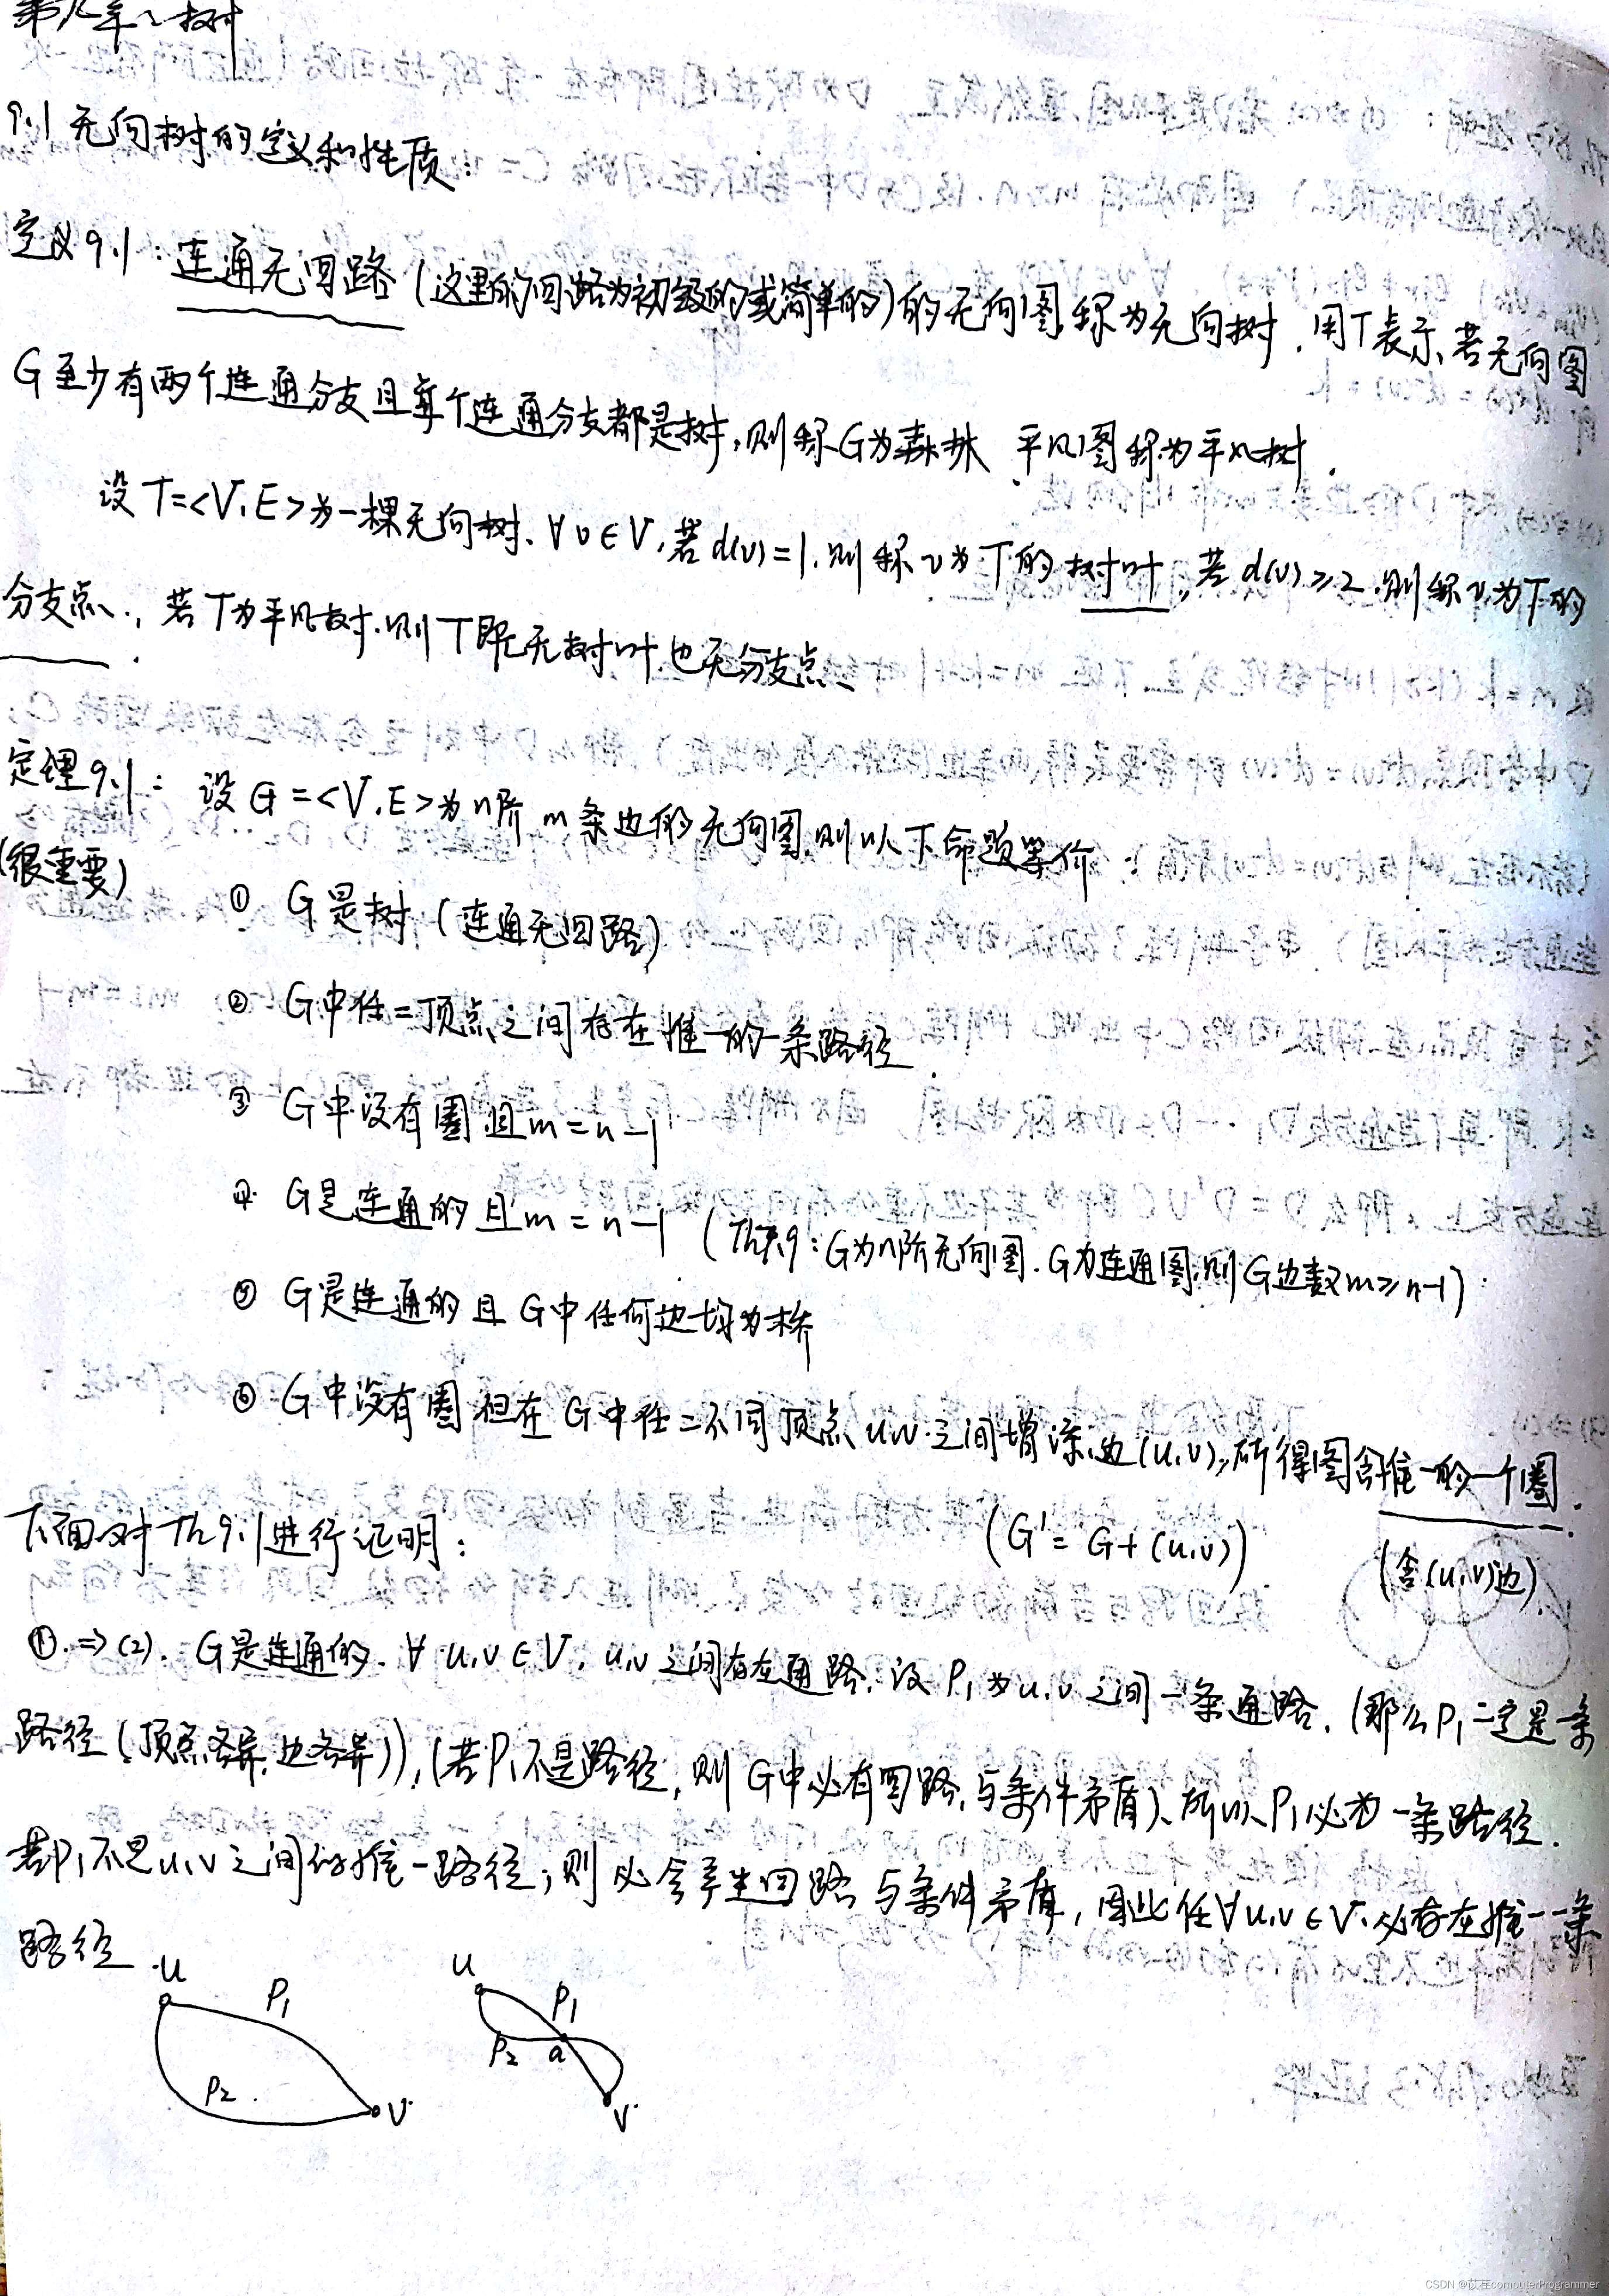 第九章、树
9.1 无向树的定义和性质:
定义9.1:连通无回路(这里的回路为初级的或简单的)的无向图称为无向树.用T表示、若无向图
G至少有两个连通分支且每个连通分支都是树,则称G为森林 平凡图称为平凡树.
设T=<V,E>为一棵无向树、∀v∈V,若d(v)=1,则称v为T的树叶,若d(v)≥2,则称v为T的
分支点、,若T为平凡树,则T既无树叶也无分支点、
定理9.1: 设G=<V,E>为n阶m条边的无向图,则以下命题等价:
(很重要)
① G是树(连通无回路)
② G中任二顶点之间存在惟一的一条路径.
③ G中没有圈且m=n-1
④ G是连通的且m=n-1 (Th7.9:G为n阶无向图.G为连通图,则G边数m≥n-1)
⑤ G是连通的且G中任何边均为桥
⑥ G中没有圈但在G中任二不同顶点u,v之间增添边(u,v),所得图含惟一的一个圈.
下面对Th9.1进行证明: (G'=G+(u,v)) (含(u,v)边)
①.⇒(2). G是连通的.∀u,v∈V,u,v之间有在通路,设P₁为u,v之间一条通路.(那么P₁一定是条
路径(顶点各异,边各异)),(若P₁不是路径,则G中必有回路,与条件矛盾)、所以P₁必为一条路径.
若P₁不是u,v之间的惟一路径,则必会产生回路与条件矛盾,因此任∀u,v∈V,必存在惟一一条
路径
u P₁ P₂ V
u P₁ P₂ a V
CSDN @苡荏computerProgrammer